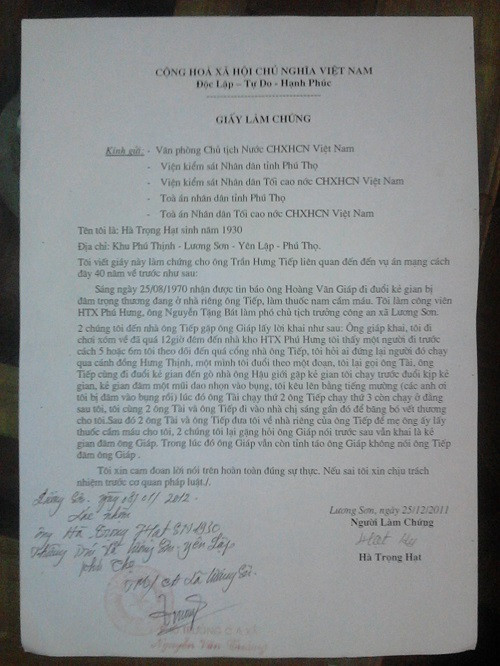 CỘNG HOÀ XÃ HỘI CHỦ NGHĨA VIỆT NAM
Độc Lập – Tự Do - Hạnh Phúc
GIẤY LÀM CHỨNG
Kính gửi: - Văn phòng Chủ tịch Nước CHXHCN Việt Nam
- Viện kiểm sát Nhân dân tỉnh Phú Thọ
- Viện kiểm sát Nhân dân Tối cao nớc CHXHCN Việt Nam
- Toà án nhân dân tỉnh Phú Thọ
- Toà án Nhân dân Tối cao nớc CHXHCN Việt Nam
Tên tôi là: Hà Trọng Hạt sinh năm 1930
Địa chỉ: Khu Phú Thịnh - Lương Sơn - Yên Lập - Phú Thọ.
Tôi viết giấy này làm chứng cho ông Trần Hưng Tiếp liên quan đến đến vụ án mạng cách
đây 40 năm về trước như sau:
Sáng ngày 25/08/1970 nhận được tin báo ông Hoàng Văn Giáp đi đuổi kẻ gian bị
đâm trọng thương đang ở nhà riêng ông Tiếp, làm thuốc nam cầm máu. Tôi làm công viên
HTX Phú Hưng, ông Nguyễn Tặng Bát làm phó chủ tịch trưởng công an xã Lương Sơn.
2 chúng tôi đến nhà ông Tiếp gặp ông Giáp lấy lời khai như sau: Ông giáp khai, tôi đi
chơi xóm về đã quá 12giờ đêm đến nhà kho HTX Phú Hưng tôi thấy một người đi trước
cách 5 hoặc 6m tôi theo dõi đến quá cổng nhà ông Tiếp, tôi hỏi ai đứng lại người đó chạy
qua cánh đồng Hưng Thịnh, một mình tôi đuổi theo một đoạn, tôi lại gọi ông Tài, ông
Tiếp cùng đi đuổi kẻ gian đến gò nhà ông Hậu giời gặp kẻ gian tôi chạy trước đuổi kịp kẻ
gian, kẻ gian đâm một mũi dao nhọn vào bụng, tôi kêu lên bằng tiếng mường (các anh ơi
tôi bị đâm vào bụng rồi) lúc đó ông Tài chạy thứ 2 ông Tiếp chạy thứ 3 còn chạy ở đằng
sau tôi, tôi cùng 2 ông Tài và ông Tiếp đi vào nhà chị sáng gần đó để băng bó vết thương
cho tôi.Sau đó 2 ông Tài và ông Tiếp đưa tôi về nhà riêng của ông Tiếp để mẹ ông ấy lấy
thuốc cầm máu cho tôi, 2 chúng tôi lại gạng hỏi ông Giáp nói trước sau vẫn khai là kẻ
gian đâm ông Giáp. Trong lúc đó ông Giáp vẫn còn tỉnh táo ông Giáp không nói ông Tiếp
đâm ông Giáp.
Tôi xin cam đoan lời nói trên hoàn toàn đúng sự thực. Nếu sai tôi xin chịu trách
nhiệm trước cơ quan pháp luật./.
Lương Sơn, ngày 25/12/2011
Người Làm Chứng
Hà Trọng Hạt
Lương Sơn. ngày 03/01/2012
Xác nhận
Ông Hà Trọng Hạt SN 1930
Xã Lương Sơn - Yên Lập
Phú Thọ
T/M/ CA xã Lương Sơn.